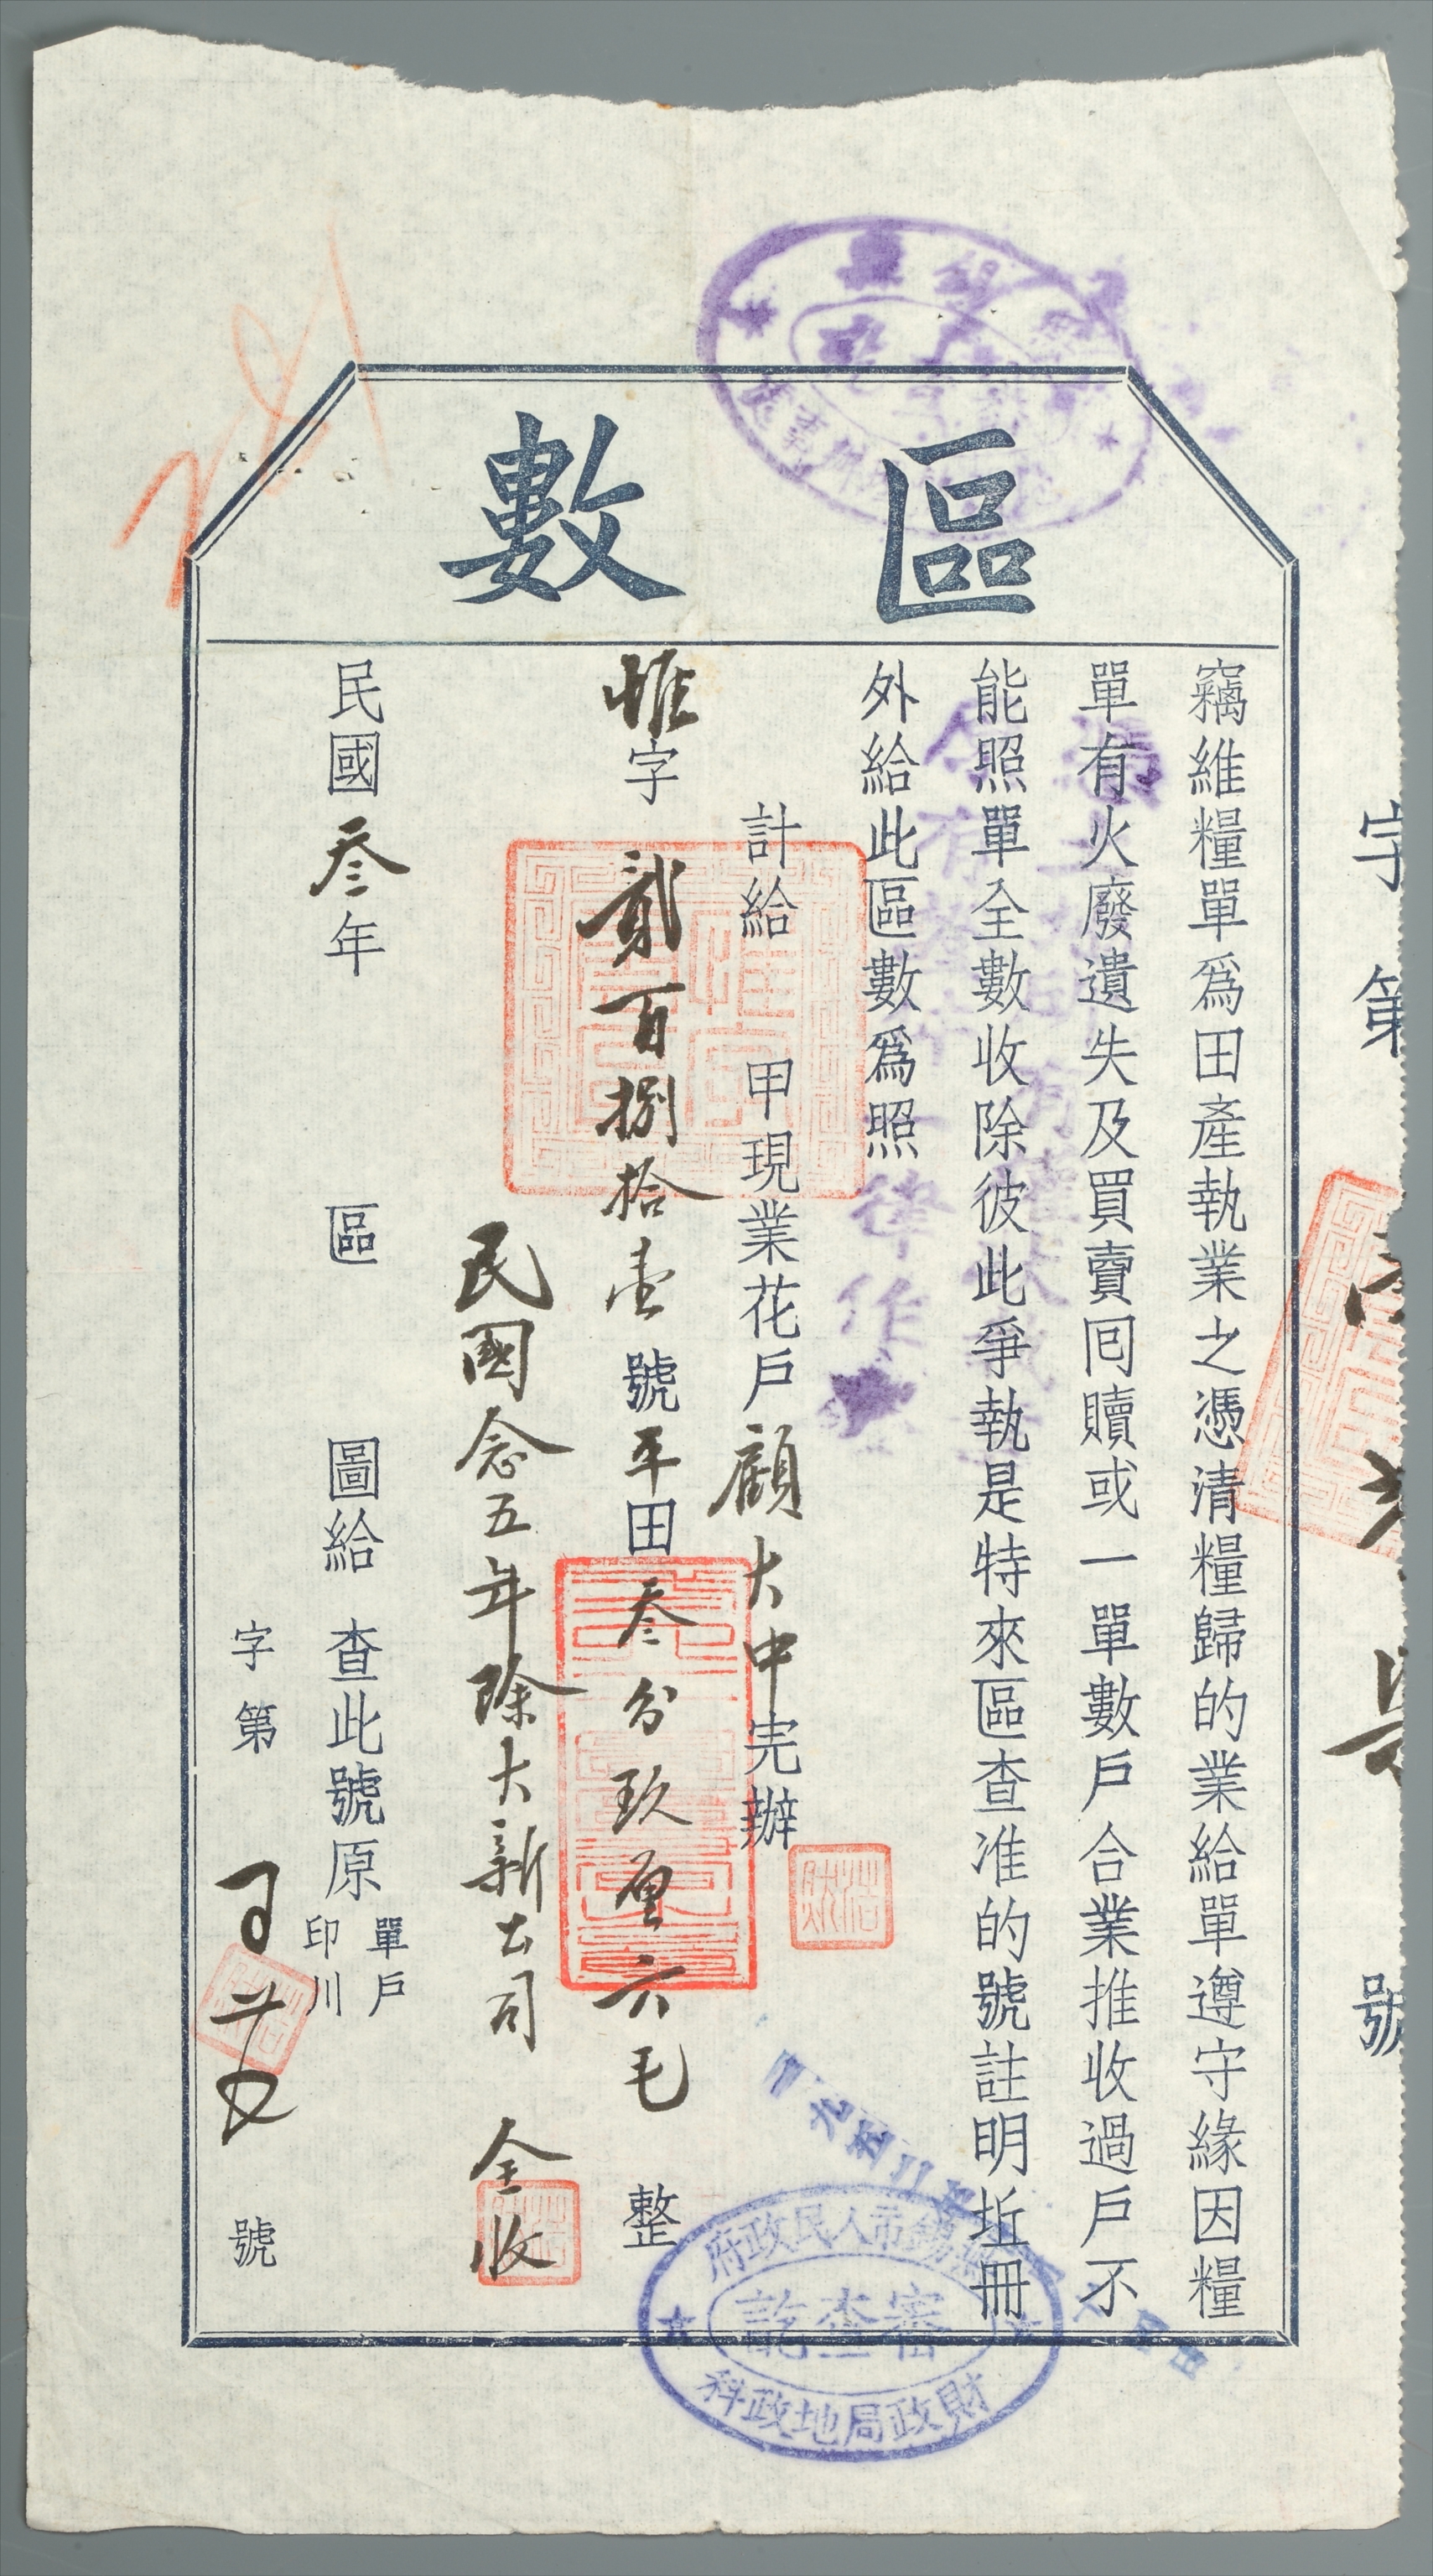 區數
竊維糧單爲田產執業之憑清糧歸的業給單遵守緣因糧
單有火廢遺失及買賣囘贖或一單數戶合業推收過戶不
能照單全數收除彼此爭執是特來區查准的號註明坵冊
外給此區數爲照
計給 甲現業花戶顧大中完辦
惟字貳百捌拾壹號平田叁分玖厘六毛 整
民國念五年除大新公司 全收
民國叁年 區 圖給 查此號原單戶印川
字第 號
字第 號
律作
一九五二年
無錫市人民政府
審查訖
財政局地政科